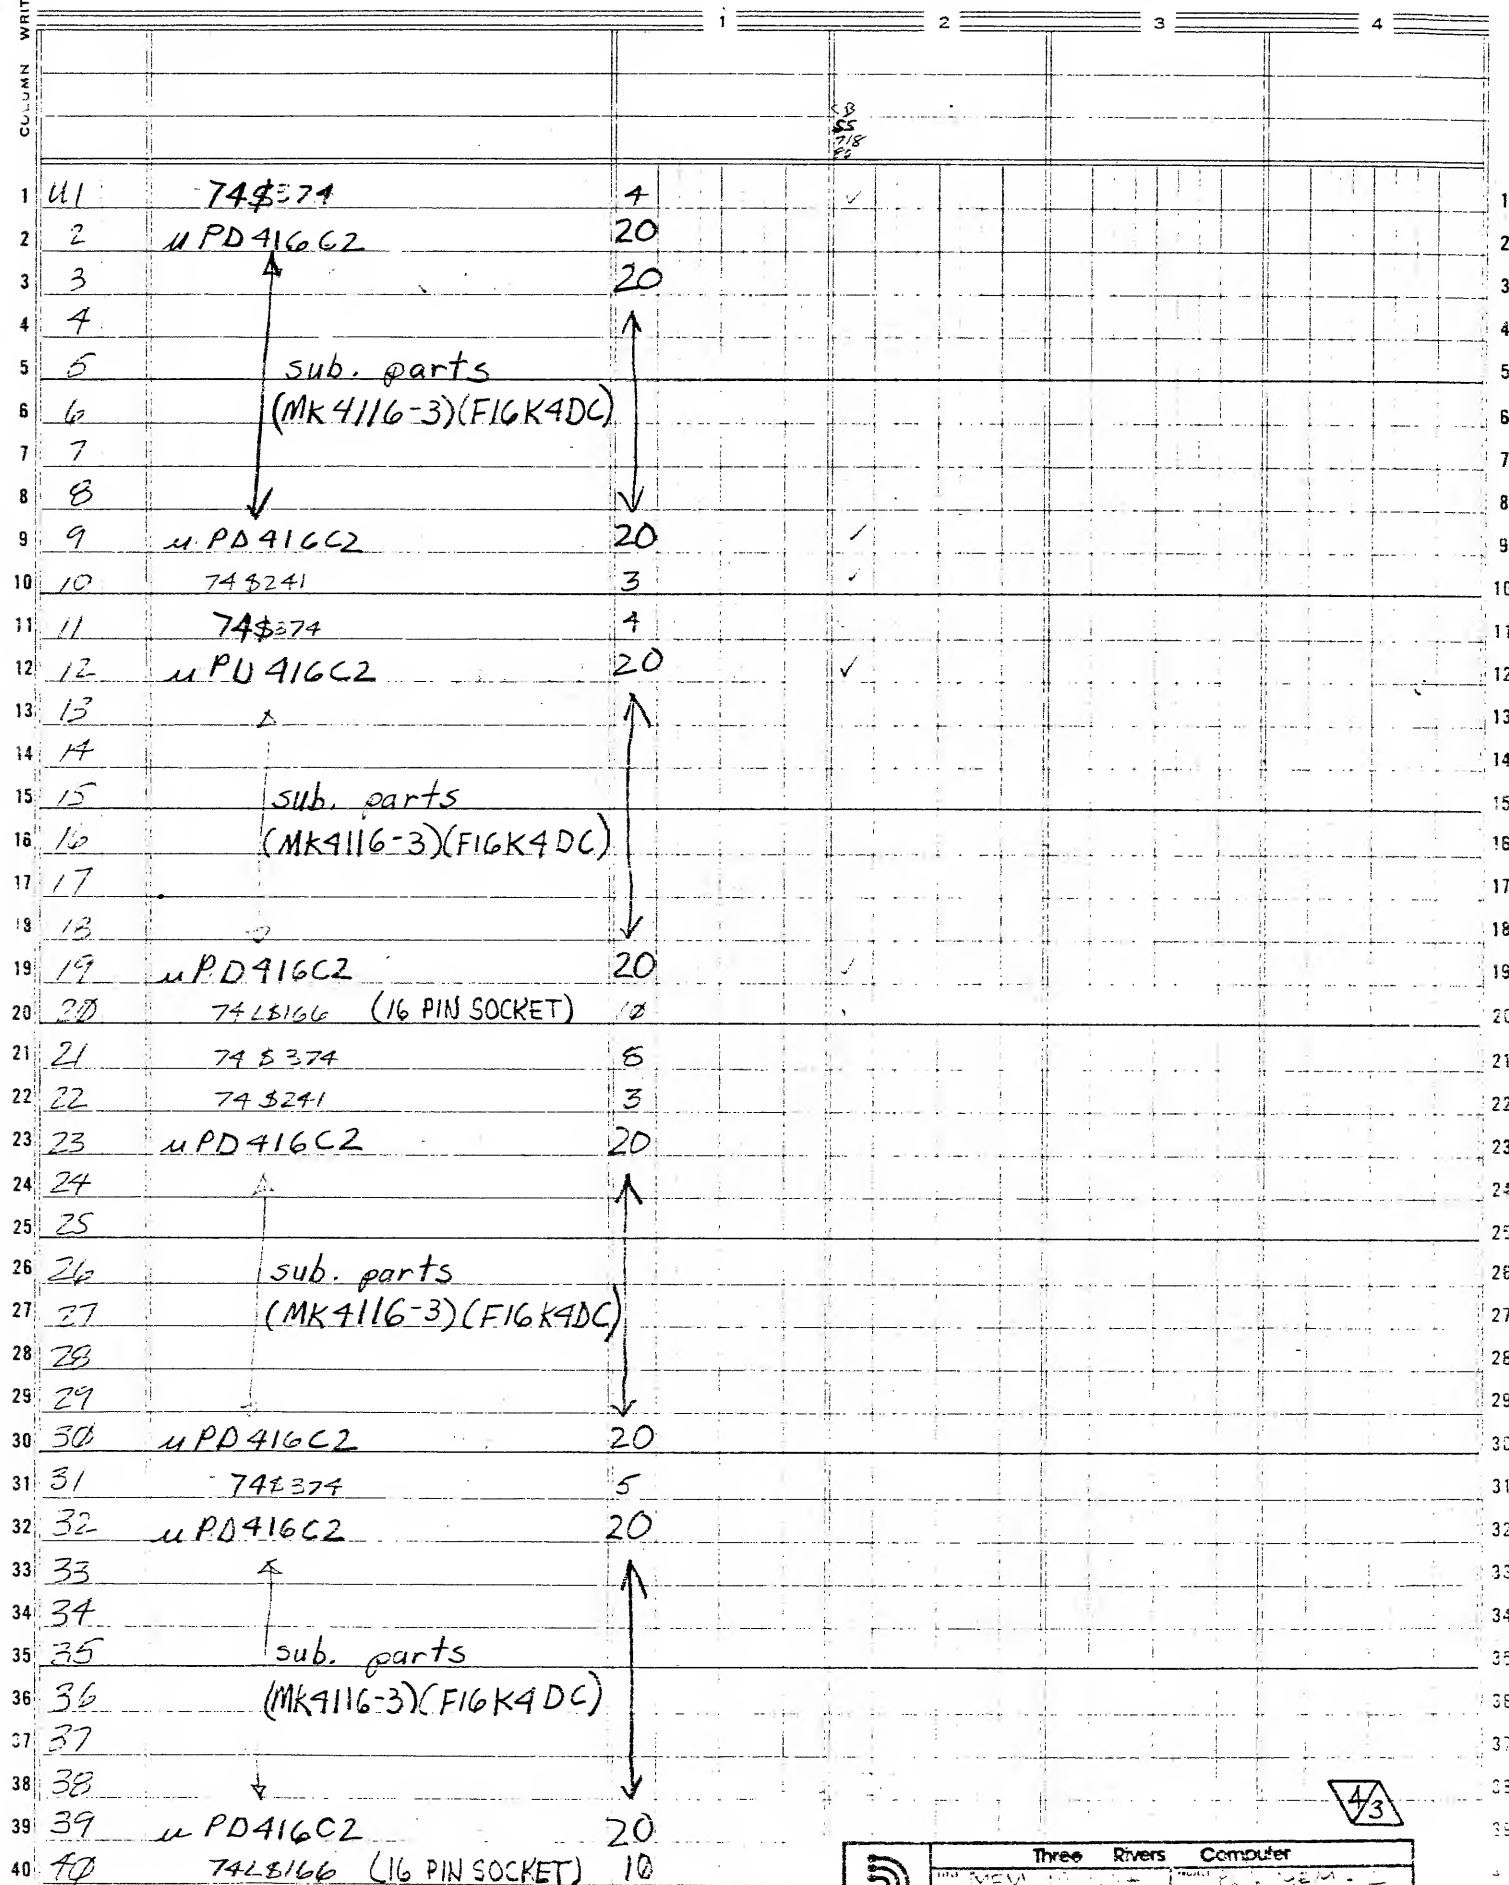 COLUMN WRIT
1 2 3 4
1 U1 74$374 4 ✓ 1
2 2 µPD416C2 20 2
3 3 20 3
4 4 4
5 5 sub. parts 5
6 6 (MK4116-3)(F16K4DC) 6
7 7 7
8 8 8
9 9 µPD416C2 20 ✓ 9
10 10 74$241 3 ✓ 10
11 11 74$374 4 11
12 12 µPD416C2 20 ✓ 12
13 13 13
14 14 14
15 15 sub. parts 15
16 16 (MK4116-3)(F16K4DC) 16
17 17 17
18 18 18
19 19 µPD416C2 20 ✓ 19
20 20 74L$166 (16 PIN SOCKET) 10 20
21 21 74$374 5 21
22 22 74$241 3 22
23 23 µPD416C2 20 23
24 24 24
25 25 25
26 26 sub. parts 26
27 27 (MK4116-3)(F16K4DC) 27
28 28 28
29 29 29
30 30 µPD416C2 20 30
31 31 74$374 5 31
32 32 µPD416C2 20 32
33 33 33
34 34 34
35 35 sub. parts 35
36 36 (MK4116-3)(F16K4DC) 36
37 37 37
38 38 38
39 39 µPD416C2 20 39
40 40 74L$166 (16 PIN SOCKET) 10
4/3
Three Rivers Computer